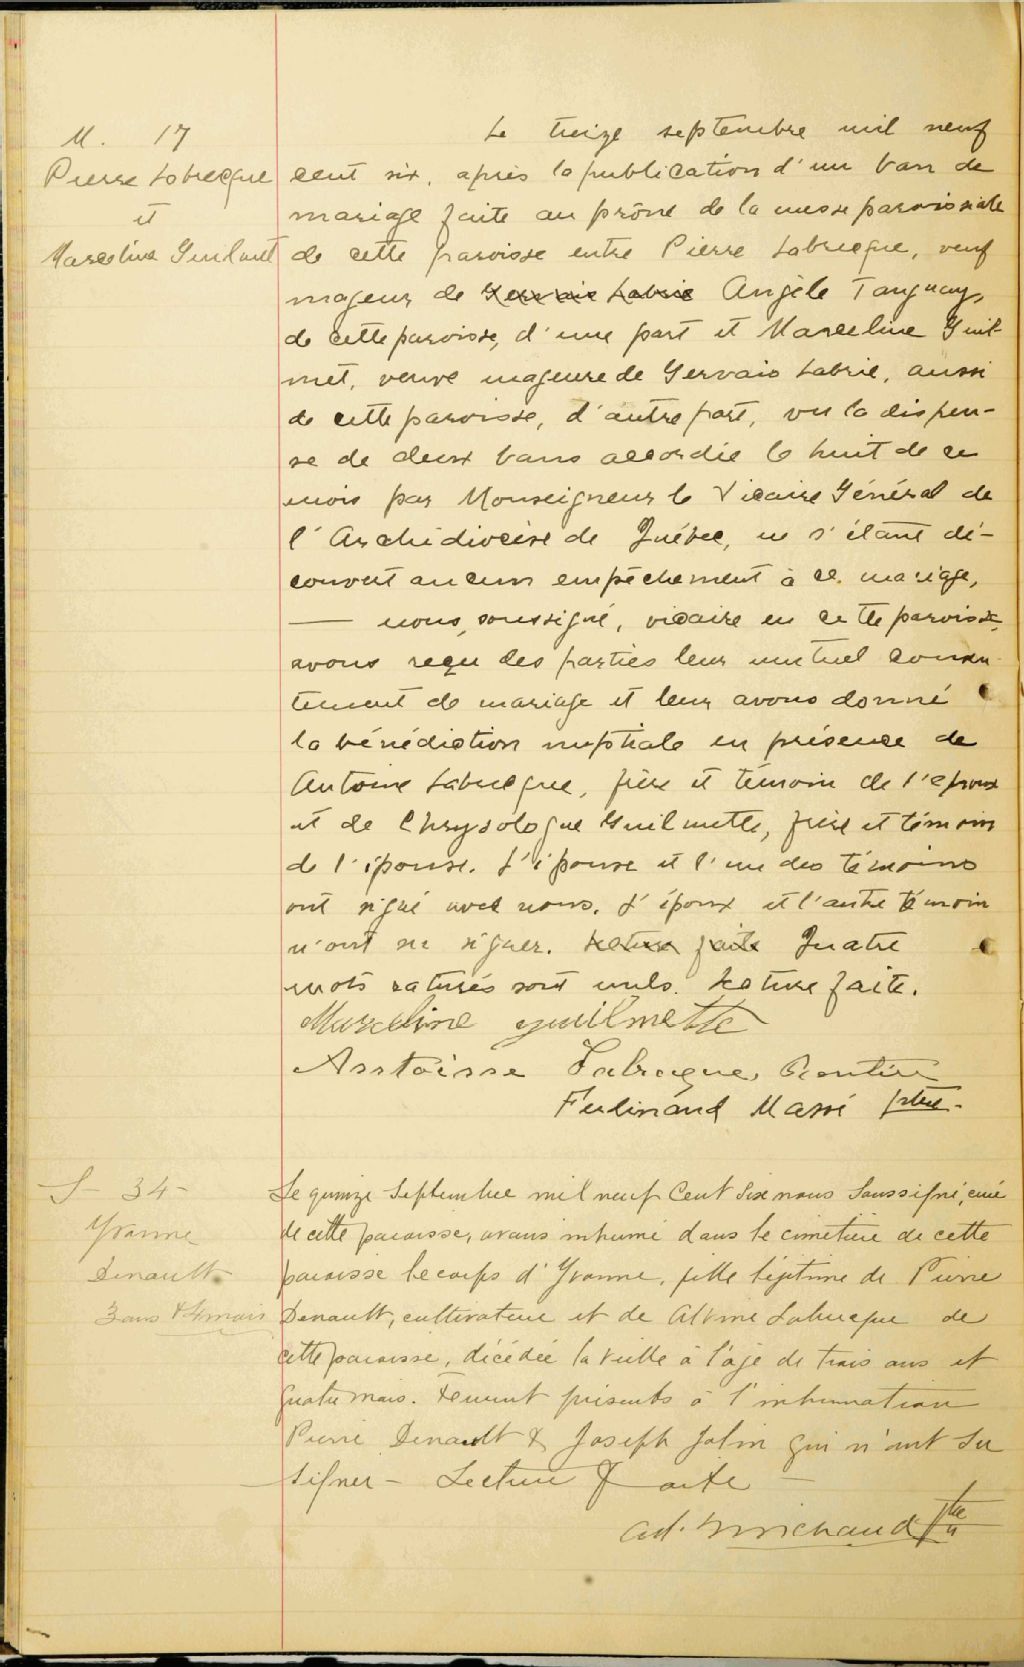 M. 17
Pierre Labrecque
et
Marceline Guilmet
Le treize septembre mil neuf
cent six, après la publication d'un ban de
mariage faite au prône de la messe paroissiale
de cette paroisse entre Pierre Labrecque, veuf
majeur de Gervais Labrie Angèle Tanguay,
de cette paroisse, d'une part et Marceline Guil-
met, veuve majeure de Gervais Labrie, aussi
de cette paroisse, d'autre part, vu la dispen-
se de deux bans accordée le huit de ce
mois par Monseigneur le Vicaire Général de
l'Archidiocèse de Québec, ne s'étant dé-
couvert aucun empêchement à ce mariage,
— nous, soussigné, vicaire en cette paroisse,
avons reçu des parties leur mutuel consen-
tement de mariage et leur avons donné
la bénédiction nuptiale en présence de
Antoine Labrecque, frère et témoin de l'époux
et de Chrysologue Guilmette, frère et témoin
de l'épouse. L'épouse et l'un des témoins
ont signé avec nous. L'époux et l'autre témoin
n'ont su signer. Lecture faite Quatre
mots raturés sont nuls. Lecture faite.
Marceline Guilmette
Labrecque, Rentier
Ferdinand Massé ptre.
S- 34-
Yvonne
Denault
3 ans & 4 mois
Le quinze Septembre mil neuf Cent Six nous Soussigné, curé
de cette paroisse, avons inhumé dans le cimetière de cette
paroisse le corps d'Yvonne, fille légitime de Pierre
Denault, cultivateur et de Alvine Labrecque de
cette paroisse, décédée la veille à l'âge de trois ans et
quatre mois. Furent présents à l'inhumation
Pierre Denault & Joseph Jolin qui n'ont Su
Signer - Lecture faite
Ad. Michaud Ptre